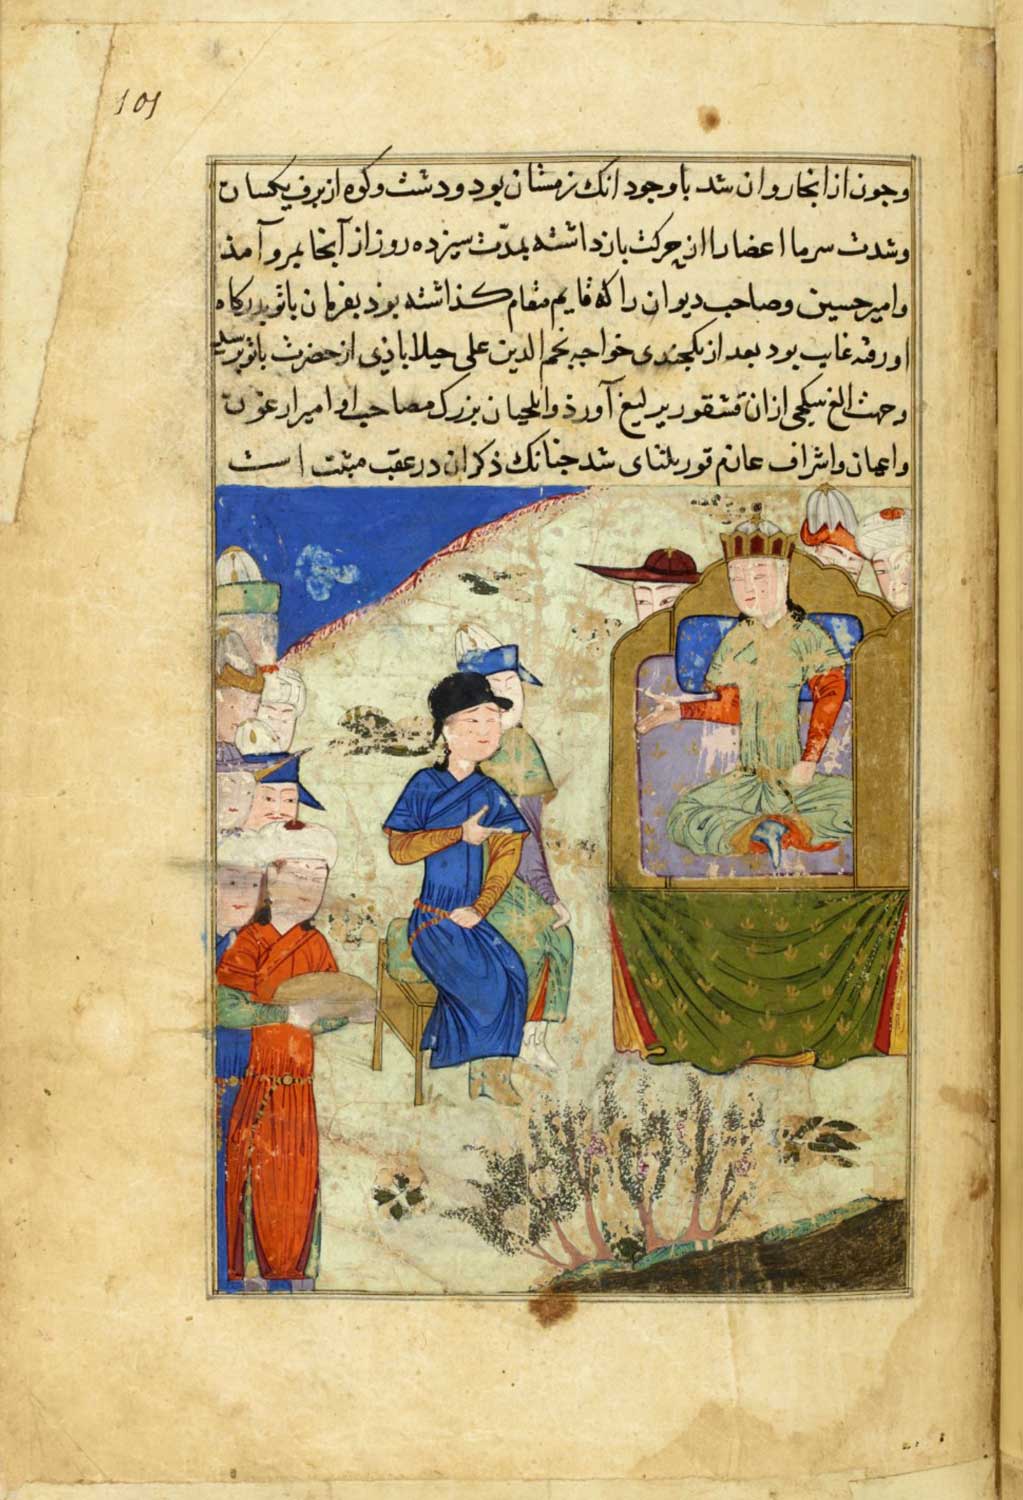 101
وجون از انجا روان شد با وجود انك زمستان بود و دشت و كوه از برف يكسان
و شدت سرما اعضا را از حركت باز داشته بمدّت سيزده روز از آنجا بمرو آمذ
و امير حسين و صاحب ديوان را كه قايم مقام كذاشته بود بفرمان باتو بدركاه
او رفته غايب بود بعد از يكجندى خواجه نجم الدين على جيلاباذى از حضرت باتو برسيد
و جهت الغ بيتكجى ازان قشقور يرليغ آورذ و ايلجيان بزرك مصاحب او امير ارغون
و اعيان و اشراف عازم قوريلتاى شد جنانك ذكر ان در عقب مثبت است